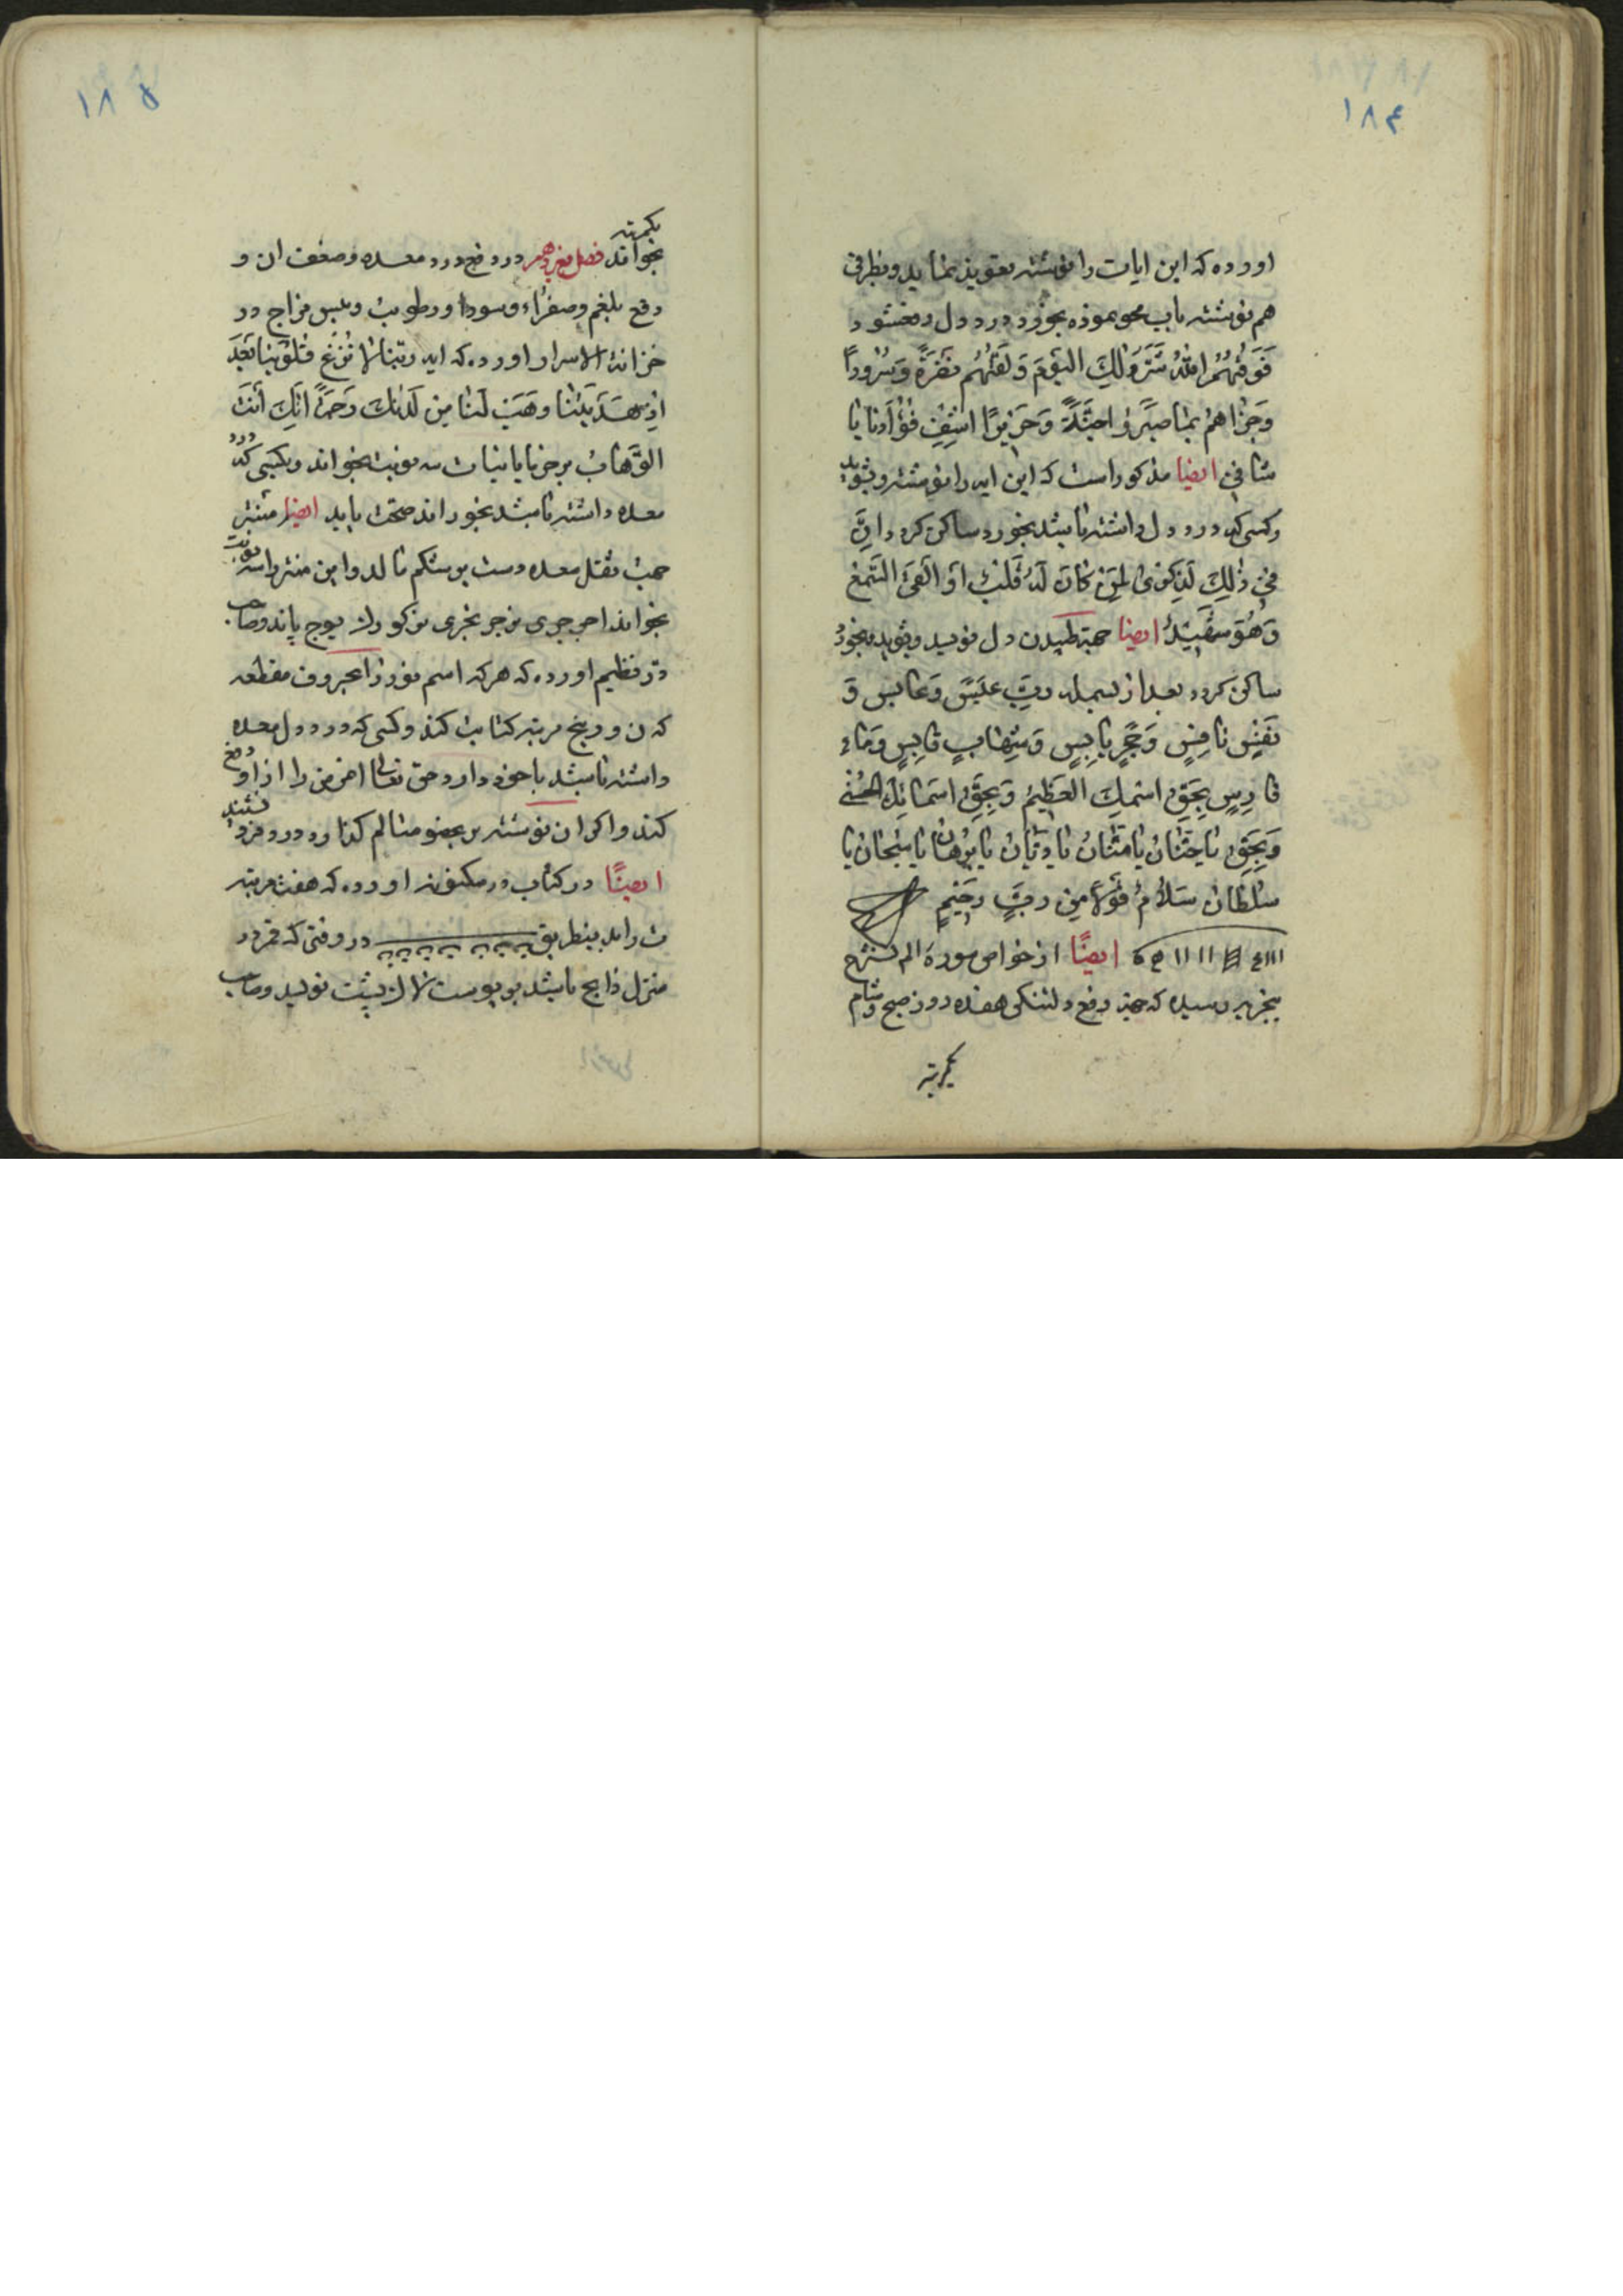 ۱۸۴
اورده که این ایات را نوشته تعویذ نماید و بظرفی
هم نوشته باب محو نموده بخورد درد دل رفع شود
فَوَقٰهُمُ اللّٰهُ شَرَّ ذٰلِكَ الیَومَ وَلَقّٰهُم نَضرَةً وَسُرُوراً
وَجَزٰاهُم بِمٰا صَبَرُوا جَنَّةً وَحَرِیراً اشفِ فُؤادنا یا
شافی ایضا مذکور است که این ایه را نوشته و بشوید
و کسی که درد دل داشته باشد بخورد ساکن کردد اِنَّ
فی ذٰلِكَ لَذِکریٰ لِمَن کانَ لَهُ قَلبٌ اَو اَلقَی السَّمعَ
وَهُوَ شَهیدٌ ایضا جهة طپیدن دل نویسد و بشوید و بخورد
ساکن کردد بعد از بسمله ربِّ عَبَسَ وَعابس وَ
نَفسٍ نافسٍ وَحَجَرٍ یابسٍ وَشِهابٍ قابسٍ وَماءٍ
فارسٍ بِحَقِّ اسمِكَ العَظیمِ وَبِحَقِّ اسمائِكَ الحُسنی
وَبِحَقِّ یا حَنّانُ یا مَنّانُ یا دَیّانُ یا بُرهانُ یا سُبحانُ یا
سُلطانُ سَلامٌ قَولاً مِن رَبٍّ رَحیمٍ
ایضًا از خواص سورة الم نشرح
بتجربه رسیده که جهة دفع دلتنکی هفده روز صبح و شام
یکمرتبه
۱۸۵
یکمرتبه
بخواند فصل هفدهم در دفع درد معده وضعف ان و
دفع بلغم وصفراء وسودا ورطوبت ویبس مزاج در
خزانة الاسرار اورده که ایه ربّنا لا تُزِغ قُلُوبَنا بَعدَ
اِذ هَدَیتَنا وهَب لَنا مِن لَدُنكَ رَحمَةً اِنَّكَ اَنتَ
الوَهّابُ بر خرما یا نبات سه نوبت بخواند وبکسی که درد
معده داشته باشد بخوراند صحت یابد ایضا منتر
جهت ثقل معده دست بر شکم مالد و این منتر را سه نوبت
بخواند اجر جری مزجر بخری و صاحب
در نظیم اورده که هر که اسم نور را بحروف مقطعه
که ن و ر پنج مرتبه کتابت کند وکسی که درد دل معده
داشته باشد با خود دارد حق تعالی امرض را از او دفع
کند واکر ان نوشته بر عضو متالم کذارد درد فرو نشیند
ایضًا در کتاب در مکنون اورده که هفت مرتبه
ث را بدینطریق در وقتی که قمر در
منزل ذابح باشد بر پوست غزال نویسد وصاحب